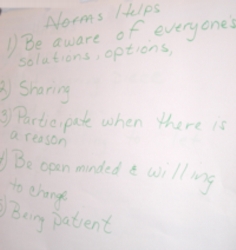 Norms Helps
1) Be aware of everyone's
solutions, options,
2) Sharing
3) Participate when there is
a reason
4) Be open minded & willing
to change
5) Being patient